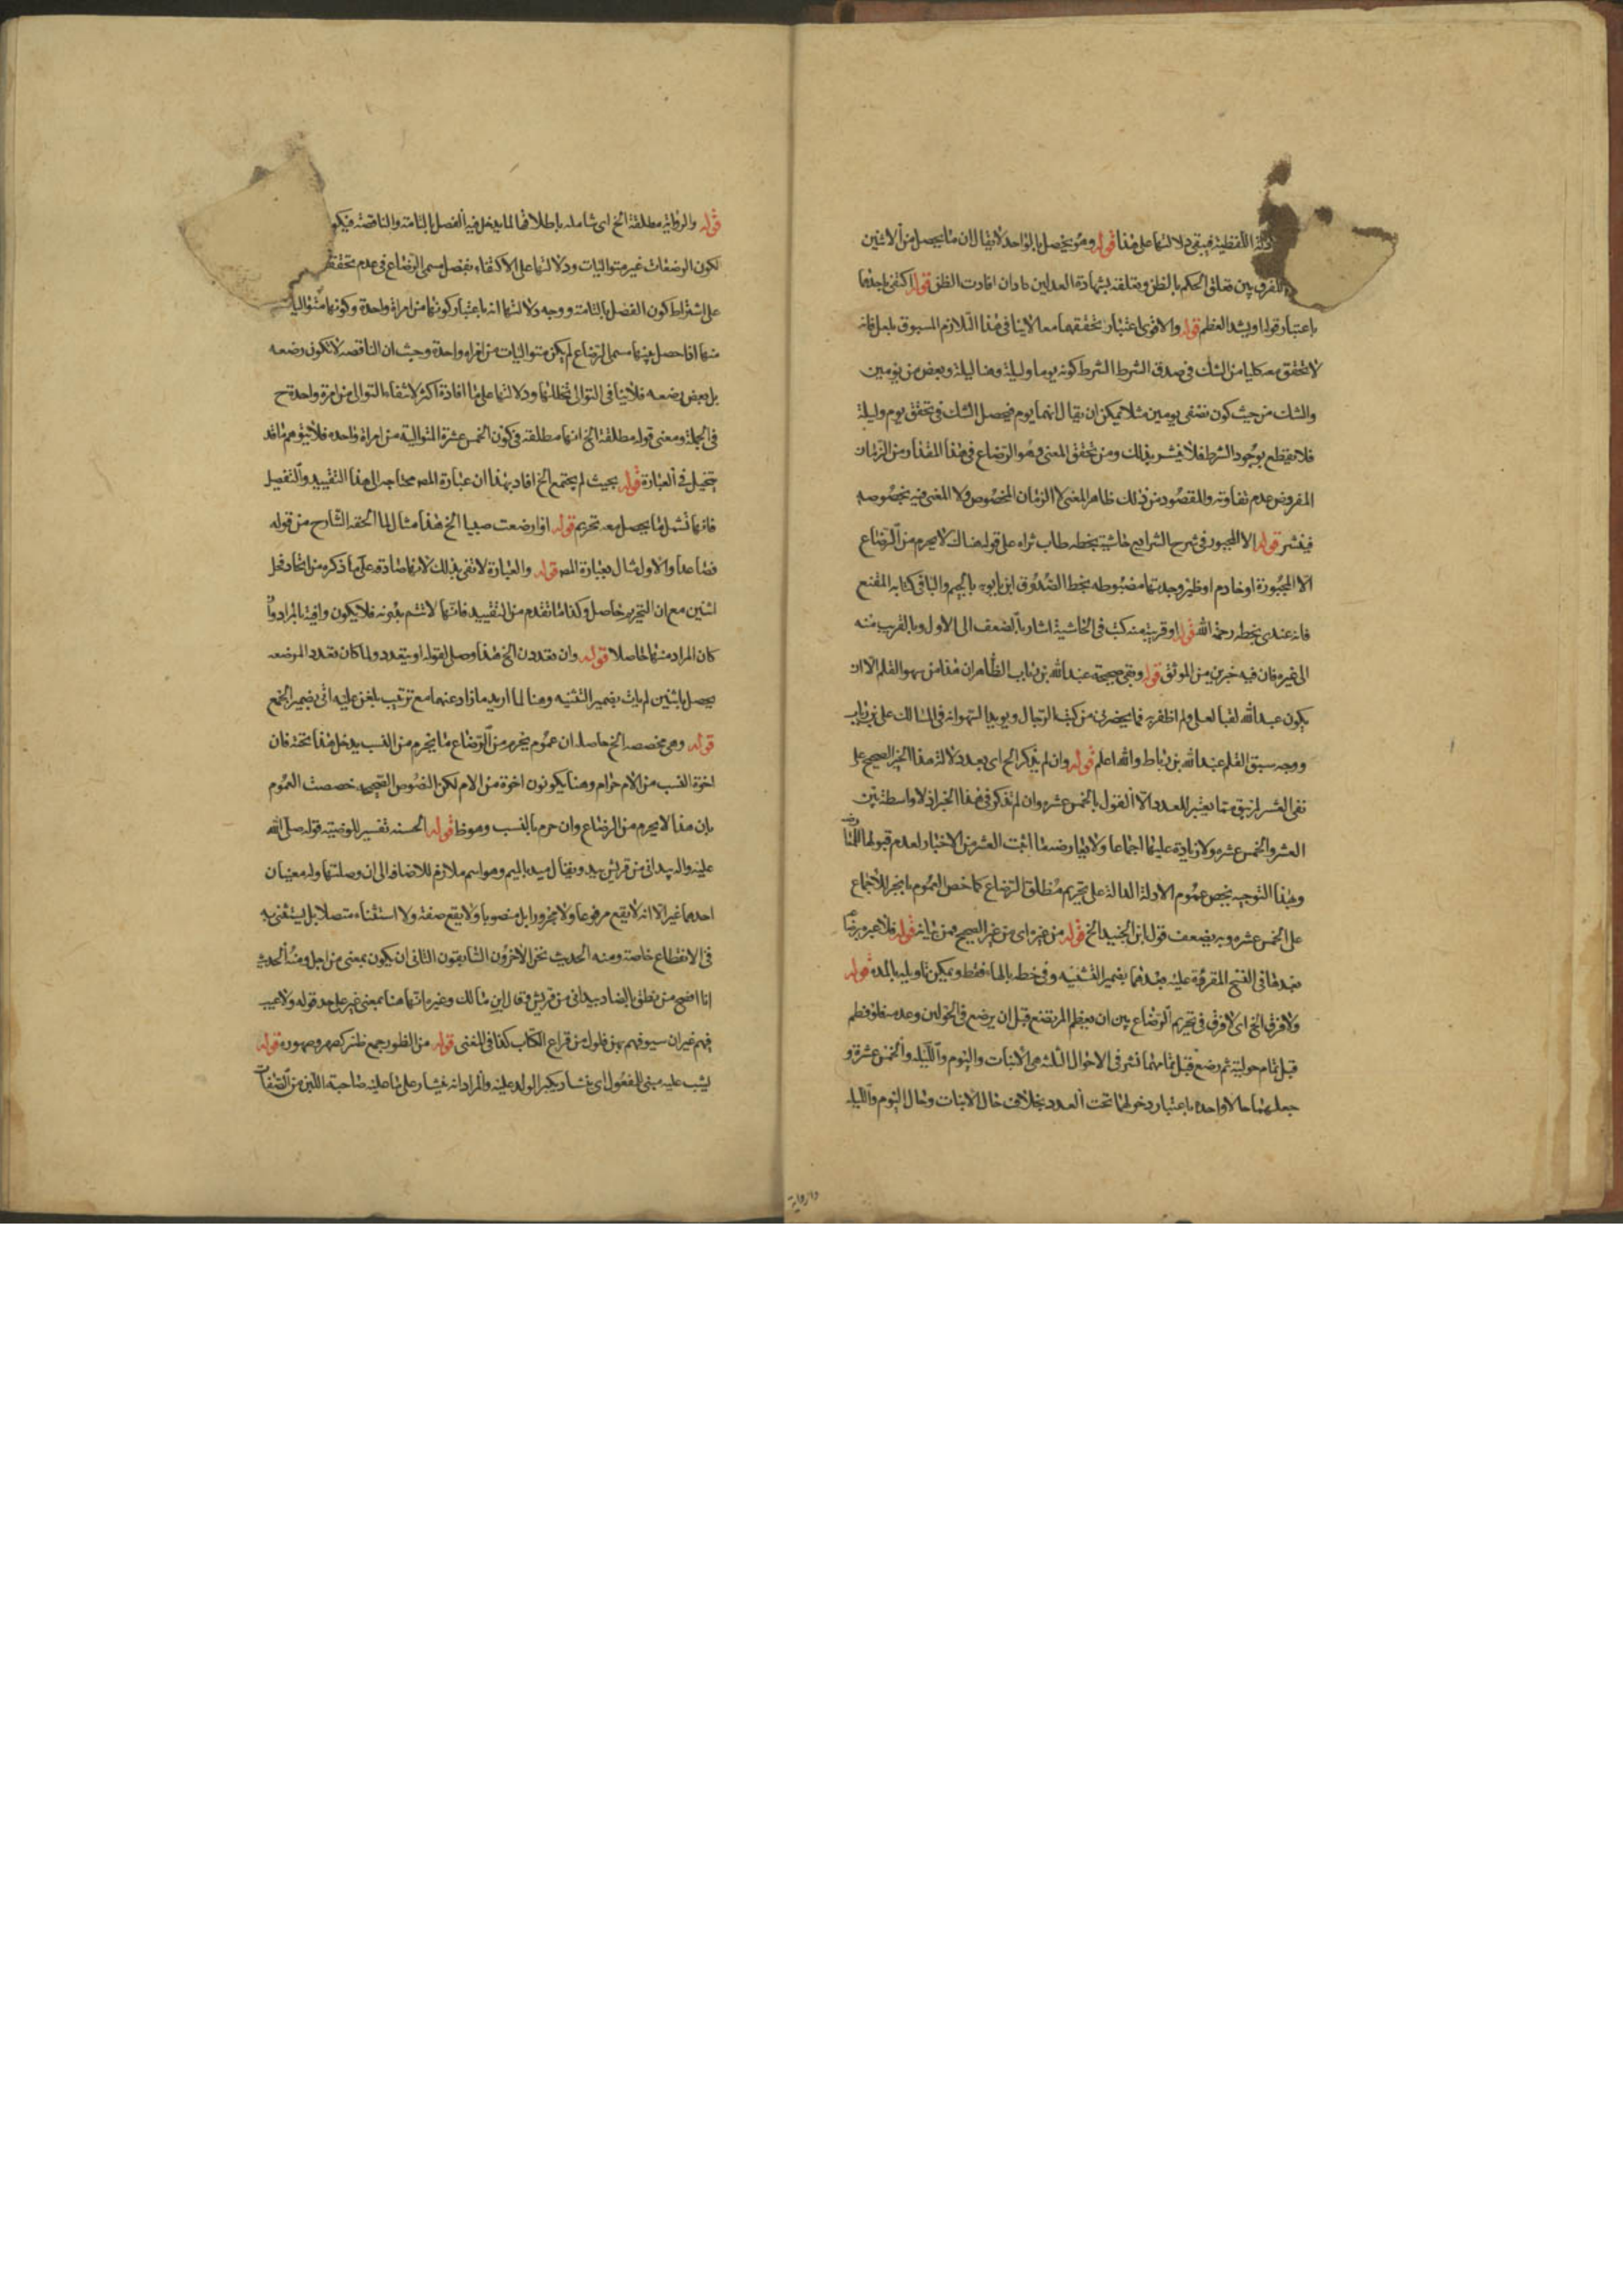 الادلة اللفظية فيبقى دلالتها على هذا قوله وهو يحصل بالواحد لا يقال ان ما يحصل من الاثنين
للفرق بين تعلق الحكم بالظن وتعلقه بشهادة العدلين وان افادت الظن قوله اكتفى باحدهما
باعتبار قوله او يشد العظم قوله والاقوى اعتبار تحققهما معا لا ينافى هذا التلازم المسبوق بلعل فانه
لا تتحقق معه كليا من الشك فى صدق الشرط الشرط كونه يوما وليلة وهنا ليلة وبعض من يومين
والشك من حيث كون نصفى يومين مثلا يمكن ان يقال انهما يوم فيحصل الشك فى تحقق يوم وليلة
فلا يقطع بوجود الشرط فلا ينشر بذلك ومن تحقق المعنى وهو الرضاع فى هذا المقدار من الزمان
المفروض عدم تفاوته والمقصود من ذلك ظاهر المعنى لا الزمان المخصوص ولا المعنى فيه بخصوصه
فينشر قوله الا المجبور فى شرح الشرايع حاشية بخطه طاب ثراه على قوله هناك لا يحرم من الرضاع
الا المجبورة او خادم او ظير وجدتها مضبوطه بخط الصدوق ابن بابويه بالجيم والباء فى كتابه المقنع
فانه عندى بخطه رحمة الله قوله او قريبة منه كتب فى الحاشية اشار بالضعف الى الاول وبالقرب منه
الى غيره فان فيه خبرين من الموثق قوله وبقى صحيحة عبد الله بن رباب الظاهر ان هذا من سهو القلم الا ان
يكون عبد الله لقبا لعلى ولم اظفر به فيما يحضرنى من كتب الرجال ويويد السهو انه فى المسالك على بن رباب
ووجه سبق القلم عبد الله بن رباط والله اعلم قوله وان لم يذكر الخ اى بعد دلالة هذا الخبر الصحيح على
نفى العشر لم يبق مما يعتبر للعدد الا القول بالخمس عشره وان لم تذكر فى هذا الخبر اذ لا واسطة بين
العشر والخمس عشره ولا زيادة عليها اجماعا ولا يعارضها اثبت العشر من الاخبار لعدم قبولها
وبهذا التوجيه يخص عموم الادلة الدالة على تحريم مطلق الرضاع كما خص العموم بالخبر للاجماع
على الخمس عشره وبه يضعف قول ابن الجنيد الخ قوله من غيره اى من غير الصحيح فمن بيانيه قوله فلا عبرة برضاع
بعدها فى النسخ المقروة عليه بعدهما بضمير التثنيه وفى خطه بالهاء فقط ويمكن تاويله بالمدة قوله
ولا فرق الخ اى لا فرق فى تحريم الرضاع بين ان يفطم المرتضع قبل ان يرضع فى الحولين وعدمه فلو فطم
قبل تمام حوليه ثم رضع قبل تمامهما نشر فى الاحوال الثلثة هى الانبات واليوم والليله والخمس عشرة و
جعلهما حالا واحده باعتبار دخولهما تحت العدد بخلاف حال الانبات وحال اليوم والليله
والرواية
قوله والرواية مطلقة الخ اى شامله باطلاقها لما يدخل فيه الفصل بالتامة والناقصة فيكو
لكون الرضعات غير متواليات ودلالتها على الاكتفاء بفصل مسمى الرضاع فى عدم تحقق
على اشتراط كون الفصل بالتامة ووجه دلالتها انه باعتبار كونها من امراة واحدة وكونها متواليات
منها اذا حصل بينها مسمى الرضاع لم يكن متواليات من امراه واحدة وحيث ان الناقصه لا تكون رضعه
بل بعض رضعه فلا ينافى التوالى تخللها ودلالتها على ما افادة اكثر لانتفاء التوالى من امرة واحدة ح
فى الجملة ومعنى قوله مطلقة الخ انها مطلقه فى كون الخمس عشرة المتوالية من امراة واحده فلا يتوهم ما قد
يتخيل فى العبارة قوله بحيث لم يجتمع الخ افاد بهذا ان عبارة المص محتاجه الى هذا التقييد والتفصيل
فانها تشمل ما يحصل معه تحريم قوله اذا ارضعت صبيا الخ هذا مثال لما الحقه الشارح من قوله
فصاعدا والاول مثال بعبارة المص قوله والعبارة لا تفى بذلك لانها صادقه على ما ذكره من اتحاد فحل
اثنين مع ان التحريم حاصل وكذا ما تقدم من التقييد فانها لا تتم بدونه فلا يكون وافية بالمراد وان
كان المراد منها حاصلا قوله وان تعددت الخ هذا وصل لقوله او يتعدد ولما كان تعدد المرضعه
يحصل باثنين لم يات بضمير التثنيه وهنا لما اريد ما زاد عنهما مع ترتب بلغن عليه اتى بضمير الجمع
قوله وهى مخصصه الخ حاصله ان عموم يحرم من الرضاع ما يحرم من النسب يدخل هذا تحته فان
اخوة النسب من الام حرام وهنا يكونون اخوة من الام لكن النصوص الصحيحه خصصت العموم
بان هذا لا يحرم من الرضاع وان حرم بالنسب وهو ظ قوله الحسنه تفسير للوضيئة قوله صلى الله
عليه واله بيد انى من قريش بيد ويقال ميد بالميم وهو اسم ملازم للاضافه الى ان وصلتها وله معنيان
احدهما غير الا انه لا يقع مرفوعا ولا مجرورا بل منصوبا ولا يقع صفة ولا استثناء متصلا بل يستثنى به
فى الانقطاع خاصة ومنه الحديث نحن الاخرون السابقون الثانى ان يكون بمعنى من اجل ومنه الحديث
انا افصح من نطق بالضاد بيد انى من قريش وقال ابن مالك وغيره انها هنا بمعنى غير على حد قوله ولا عيب
فيهم غير ان سيوفهم بهن فلول من قراع الكتاب كذا فى المغنى قوله من الظور جمع ظئر كصهر وصهوره قوله
يشب عليه مبنى للمفعول اى ينشا ويكبر الولد عليه والمراد انه ينشا على ما عليه صاحبة اللبن من الصفات